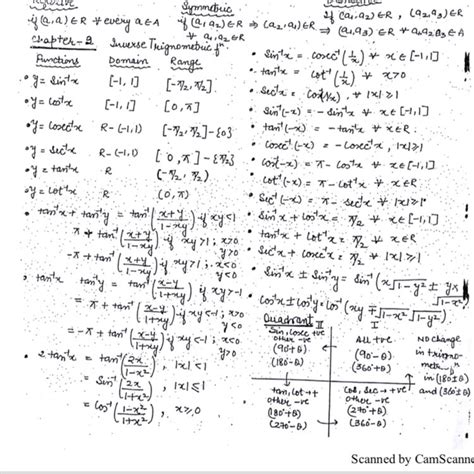 Symmetric
if (a,a) ∈ R ∀ every a ∈ A
if (a₁,a₂) ∈ R ⇒ (a₂,a₁) ∈ R ∀ a₁,a₂ ∈ R
if (a₁,a₂) ∈ R, (a₂,a₃) ∈ R ⇒ (a₁,a₃) ∈ R ∀ a₁a₂a₃ ∈ A
Chapter-2 Inverse Trignometric fⁿ
Functions Domain Range
• y = Sin⁻¹x [-1, 1] [-π/2, π/2]
• y = Cos⁻¹x [-1, 1] [0, π]
• y = Cosec⁻¹x R-(-1,1) [-π/2, π/2]-{0}
• y = Sec⁻¹x R-(-1,1) [0, π]-{π/2}
• y = tan⁻¹x R (-π/2, π/2)
• y = Cot⁻¹x R (0, π)
• tan⁻¹x + tan⁻¹y = tan⁻¹(x+y/1-xy) if xy<1
π + tan⁻¹(x+y/1-xy) if xy>1; x>0 y>0
-π + tan⁻¹(x+y/1-xy) if xy>1; x<0 y<0
tan⁻¹x tan⁻¹y = tan⁻¹(x-y/1+xy) if xy>-1
= π + tan⁻¹(x-y/1+xy) if xy<-1; x>0 y<0
= -π + tan⁻¹(x-y/1+xy) if xy<-1; x<0 y>0
• 2tan⁻¹x = tan⁻¹(2x/1-x²), |x|<1
= Sin⁻¹(2x/1+x²), |x|≤1
= Cos⁻¹(1-x²/1+x²), x≥0
• Sin⁻¹x = Cosec⁻¹(1/x) ∀ x ∈ [-1,1]
• tan⁻¹x = Cot⁻¹(1/x) ∀ x>0
• Sec⁻¹x = ∀ |x|≥1
• Sin⁻¹(-x) = -Sin⁻¹x ∀ x ∈ [-1,1]
• tan⁻¹(-x) = -tan⁻¹x ∀ x ∈ R
• Cosec⁻¹(-x) = -Cosec⁻¹x, |x|≥1
• Cos⁻¹(-x) = π - Cos⁻¹x ∀ x ∈ [-1,1]
• Cot⁻¹(-x) = π - Cot⁻¹x ∀ x ∈ R
• Sec⁻¹(-x) = π - Sec⁻¹x ∀ |x|≥1
• Sin⁻¹x + Cos⁻¹x = π/2 ∀ x ∈ [-1,1]
• tan⁻¹x + Cot⁻¹x = π/2 ∀ x ∈ R
• Sec⁻¹x + Cosec⁻¹x = π/2 ∀ |x|≥1
• Sin⁻¹x ± Sin⁻¹y = Sin⁻¹(x√1-y² ± y√1-x²)
• Cos⁻¹x ± Cos⁻¹y = Cos⁻¹(xy ∓ √1-x² √1-y²)
Quadrant
II I
Sin, Cosec +ve
other -ve
(90+θ)
(180-θ)
All +ve
(90-θ)
(360+θ)
NO change
in trigno-
in (180±θ)
and (360±θ)
tan, Cot → +
other -ve
(180+θ)
(270-θ)
Cos, Sec → +ve
other -ve
(270+θ)
(360-θ)
Scanned by CamScanne